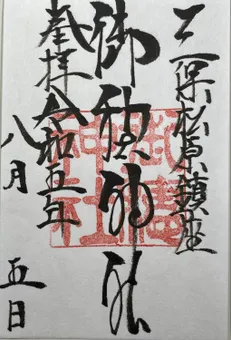 三保松原鎮座
御穂神社
奉拝
令和五年
八月
五日
神社